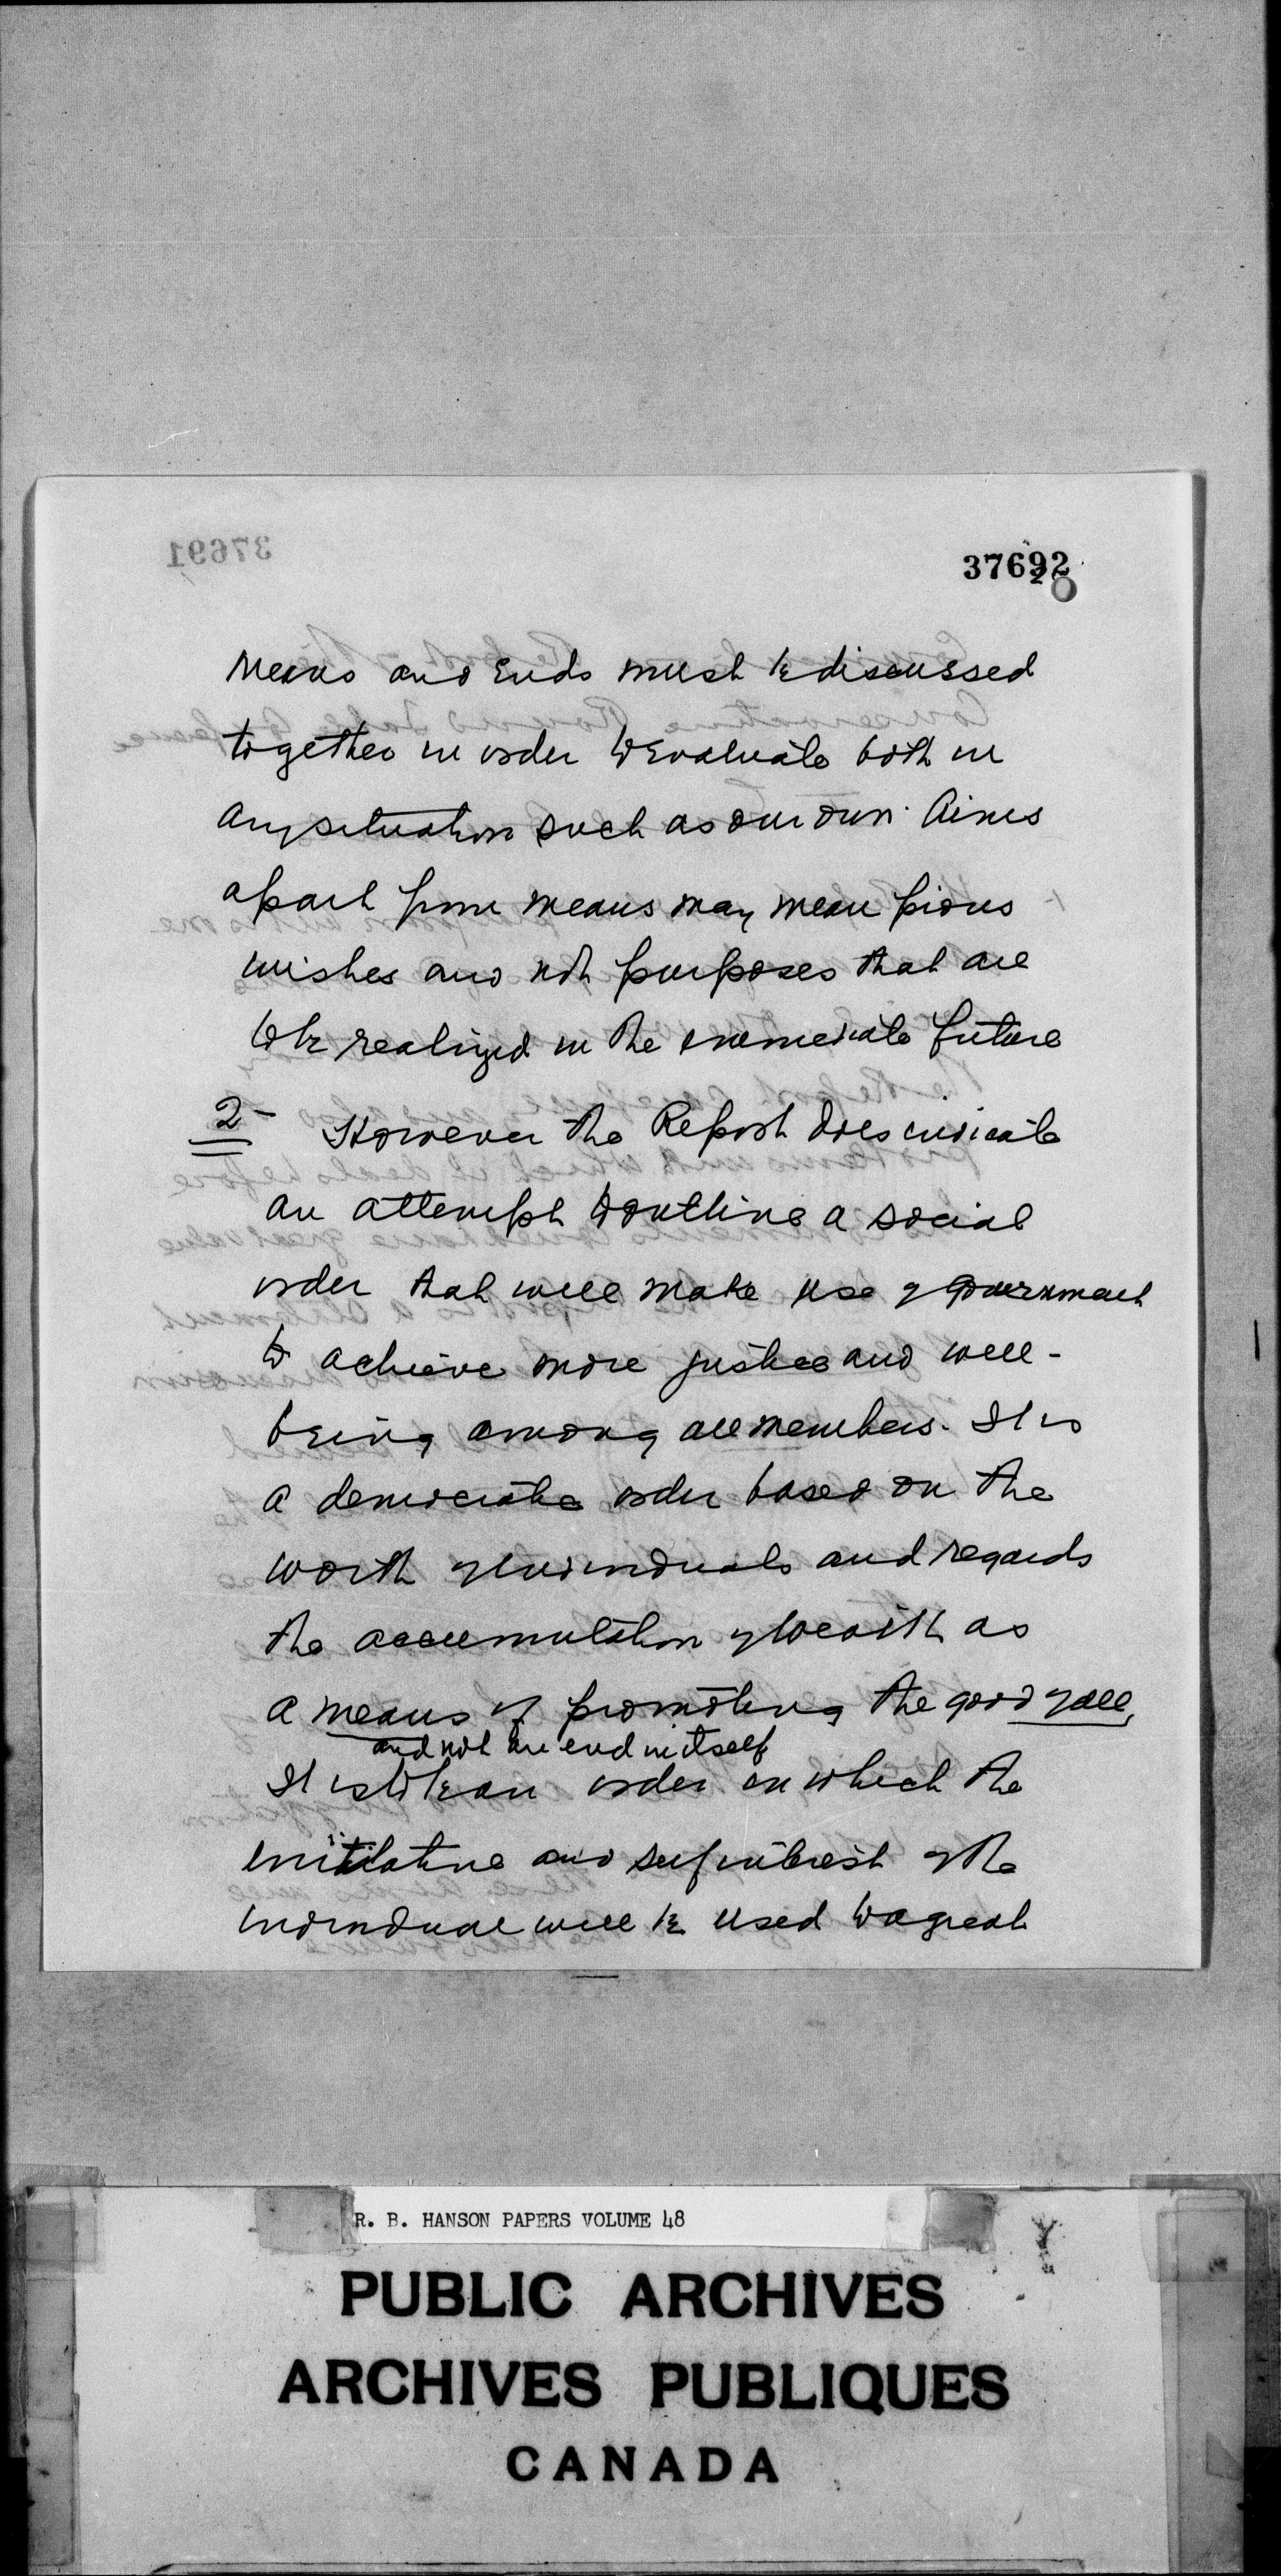 37691
37692
means and ends must be discussed
together in order to evaluate both in
any situation such as our own. Aims
apart from means may mean pious
wishes and not purposes that are
to be realized in the immediate future
2- However the Report does indicate
an attempt to outline a social
order that will make use of government
to achieve more justice and well-
being among all members. It is
a democratic order based on the
worth of individuals and regards
the accumulation of wealth as
a means of promoting the good of all,
and not an end in itself
It is to be an order in which the
initiative and self interest of the
individual will be used to a great
R. B. HANSON PAPERS VOLUME 48
PUBLIC ARCHIVES
ARCHIVES PUBLIQUES
CANADA